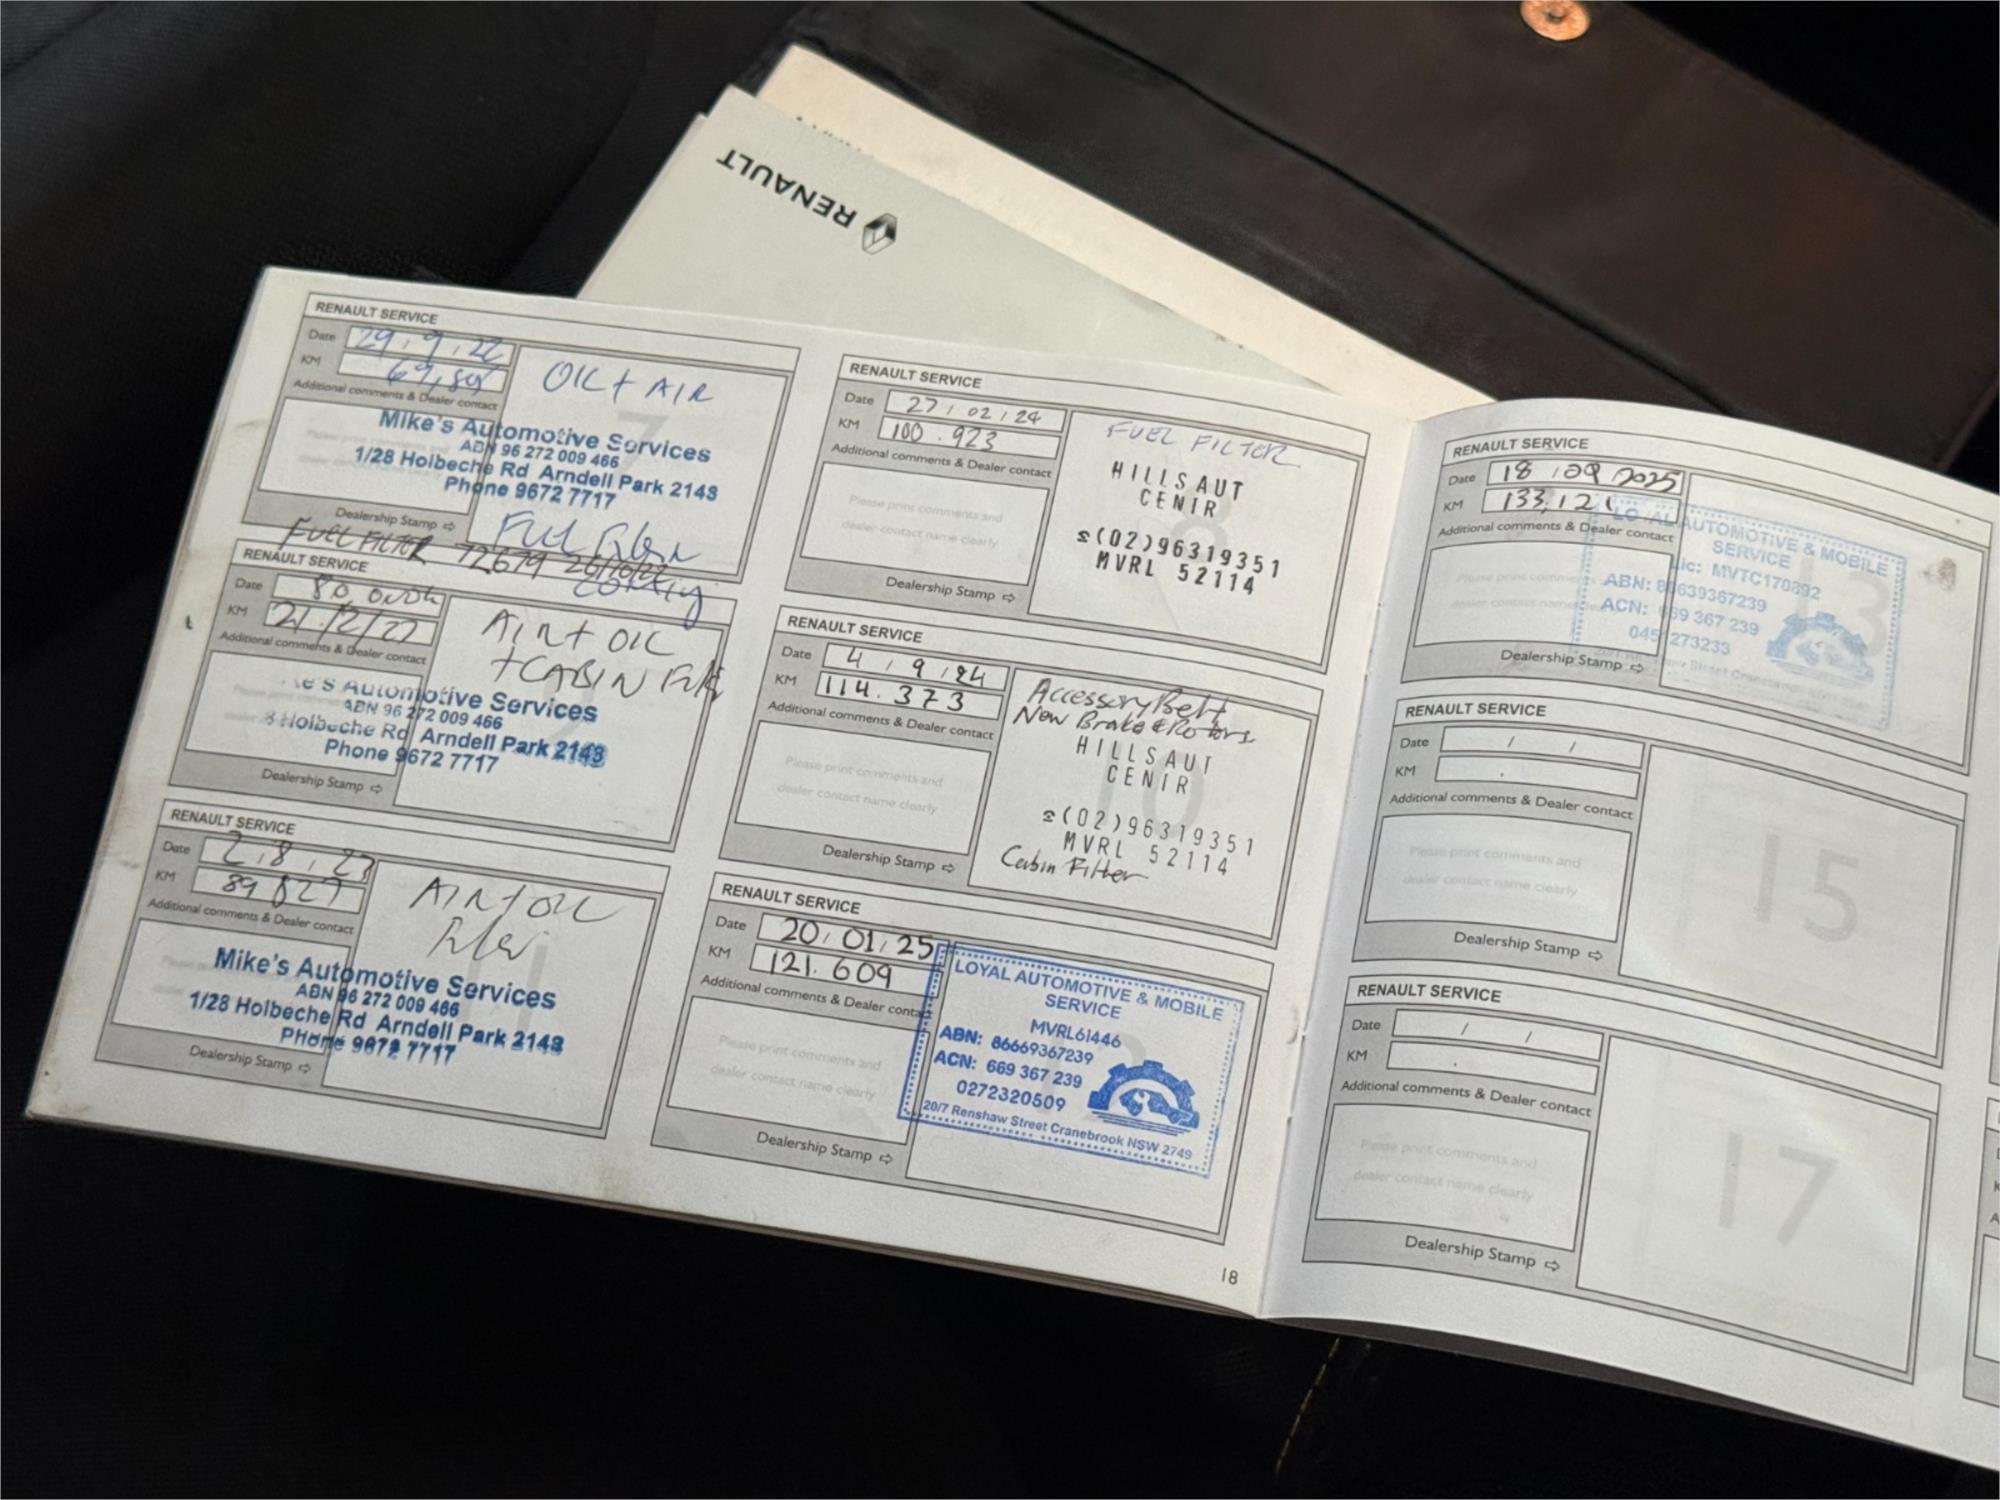 RENAULT
RENAULT SERVICE
Date 29.9.22
KM
OIL + AIR
Additional comments & Dealer contact
Mike's Automotive Services
ABN 96 272 009 466
1/28 Holbeche Rd Arndell Park 2148
Phone 9672 7717
Dealership Stamp
Fuel
FUEL FILTER 72679 26/10/22
RENAULT SERVICE
Date 80,000k
KM 21/12/22
AIR + OIL
+ CABIN
Additional comments & Dealer contact
Automotive Services
ABN 96 272 009 466
Holbeche Rd Arndell Park 2148
Phone 9672 7717
Dealership Stamp
RENAULT SERVICE
Date 2.8.23
KM 89 827
AIR + OIL
Additional comments & Dealer contact
Mike's Automotive Services
ABN 96 272 009 466
1/28 Holbeche Rd Arndell Park 2148
Phone 9672 7717
Dealership Stamp
RENAULT SERVICE
Date 27/02/24
KM 100.923
FUEL FILTER
Additional comments & Dealer contact
Please print comments and
dealer contact name clearly
HILLSAUT
CENIR
(02)96319351
MVRL 52114
Dealership Stamp
8
RENAULT SERVICE
Date 4/9/24
KM 114.373
Accessory Belt
New Brake & Rotors
Additional comments & Dealer contact
Please print comments and
dealer contact name clearly
HILLSAUT
CENIR
(02)96319351
MVRL 52114
Cabin Filter
Dealership Stamp
10
RENAULT SERVICE
Date 20/01/25
KM 121.609
Additional comments & Dealer contact
Please print comments and
dealer contact name clearly
LOYAL AUTOMOTIVE & MOBILE
SERVICE
MVRL61446
ABN: 86669367239
ACN: 669 367 239
0272320509
20/7 Renshaw Street Cranebrook NSW 2749
Dealership Stamp
18
RENAULT SERVICE
Date 18/09/2025
KM 133,121
Additional comments & Dealer contact
AUTOMOTIVE & MOBILE
SERVICE
Lic: MVTC170892
ABN:
ACN: 669 367 239
273233
13
Dealership Stamp
RENAULT SERVICE
Date / /
KM .
Additional comments & Dealer contact
Please print comments and
dealer contact name clearly
Dealership Stamp
15
RENAULT SERVICE
Date / /
KM .
Additional comments & Dealer contact
Please print comments and
dealer contact name clearly
Dealership Stamp
17